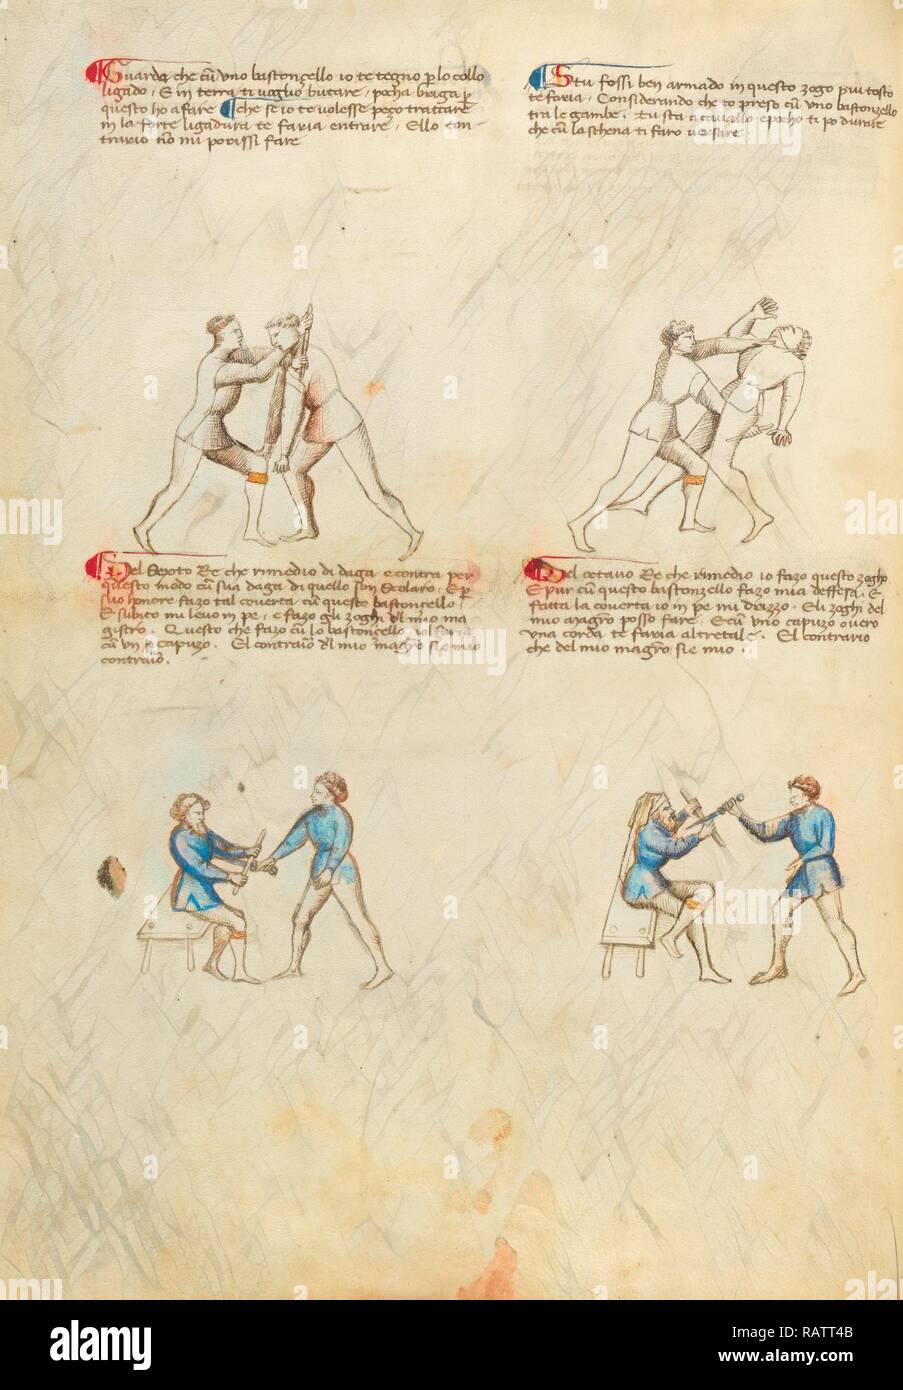 Guarda che cu uno bastoncello io te tegno p lo collo
ligado, E in terra ti voglio butare, pocha briga p
questo ho a fare che se io te volesse pezo trattare
in la forte ligadura te faria entrare, Ello con-
trario no mi porissi fare
Stu fossi ben armado in questo zogo piui tosto
te faria, Considerando che to preso cu uno bastonzello
tra le gambe. Tu sta a cavallo e pocho ti po durare
che cu la schena ti faro versare
Del Sexto Re che rimedio di daga e contra per
questo modo cu sua daga di quello son Scolaro, E p
suo honore fazo tal coverta cu questo bastoncello,
E subito mi levo in pe, e fazo gli zoghi dl mio ma
gistro. Questo che fazo cu lo bastoncello vol faria
cu un capuzo. El contraio dl mio magro si e mio
contraio.
Del octavo Re che rimedio io fazo questo zogho
E pur cu questo bastonzello fazo mia deffesa. E
fatta la coverta io in pe mi drizzo. Eli zoghi del
mio magro posso fare, E cu uno capuzo overo
una corda te faria altretale. El contrario
che del mio magro si e mio.
alamy
Image ID: RATT4B
www.alamy.com